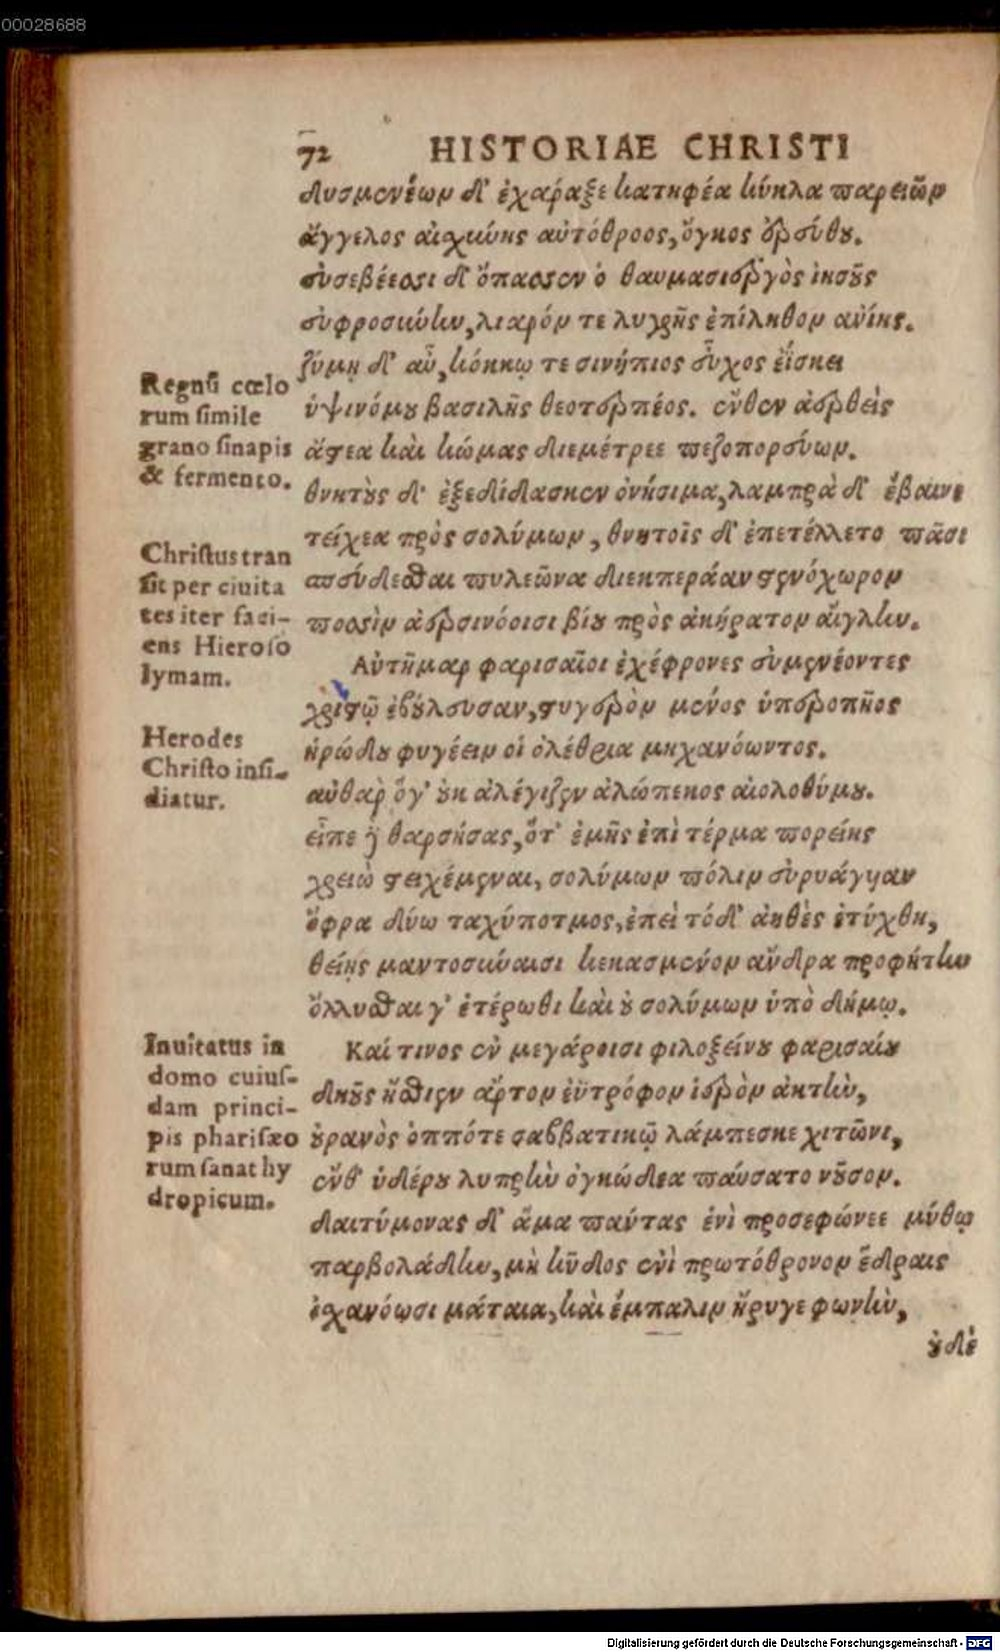 00028688
72 HISTORIAE CHRISTI
δυσμενέων δ' ἐχάραξε κατηφέα κύκλα παρειῶν
ἄγγελος αἰσχύνης αὐτόθροος, ὄγκος ἐρεύθου.
εὐσεβέεσσι δ' ὄπασσεν ὁ θαυμασιεργὸς ἰησοῦς
εὐφροσύνην, λιαρόν τε λυγρῆς ἐπίληθον ἀνίης.
ζύμῃ δ' αὖ, κόκκῳ τε σινήπιος εὖχος ἔϊσκει
ὑψινόμου βασιλῆς θεοτερπέος. ἔνθεν ἀερθεὶς
ἄστεα καὶ κώμας διεμέτρεε πεζοπορεύων.
θνητοὺς δ' ἐξεδίδασκεν ὀνήσιμα, λαμπρὰ δ' ἔβαινε
τείχεα πρὸς σολύμων, θνητοῖς δ' ἐπετέλλετο πᾶσι
σπεύδεσθαι πυλεῶνα διεκπεράαν στενόχωρον
ποσσὶν ἀερσινόοισι βίου πρὸς ἀκήρατον αἴγλην.
Αὐτῆμαρ φαρισαῖοι ἐχέφρονες εὐμενέοντες
χριστῷ ἐβούλευσαν, στυγερὸν μένος ὑπεροπῆος
ἡρώδου φυγέειν οἱ ὀλέθρια μηχανόωντος.
αὐθὰρ ὅγ' οὐκ ἀλέγιζεν ἀλώπεκος αἰολοθύμου.
εἶπε δὲ θαρσήσας, ὅτ' ἐμῆς ἐπὶ τέρμα πορείης
χρειὼ στειχέμεναι, σολύμων πόλιν εὐρυάγυιαν
ὄφρα δύω ταχύποτμος, ἐπεὶ τόδ' ἀηθὲς ἐτύχθη,
θείῃς μαντοσύναισι κεκασμένον ἄνδρα προφήτην
ὄλλυσθαι γ' ἑτέρωθι καὶ οὐ σολύμων ὑπὸ δήμῳ.
Καί τινος ἐν μεγάροισι φιλοξείνου φαρισαίου
δηοῦς ἤσθιεν ἄρτον ἐϋτρόφον ἱερὸν ἀκτὴν,
οὐρανὸς ὁππότε σαββατικῷ λάμπεσκε χιτῶνι,
ἔνθ' ὑδέρου λυπρὴν ὀγκώδεα παύσατο νοῦσον.
δαιτύμονας δ' ἅμα πάντας ἑνὶ προσεφώνεε μύθῳ
παρβολάδην, μὴ κῦδος ἐνὶ πρωτόθρονον ἕδραις
ἰχανόωσι μάταια, καὶ ἔμπαλιν ἤρυγε φωνὴν,
οὐδὲ
Regnũ cœlo
rum simile
grano sinapis
& fermento.
Christus tran
sit per ciuita
tes iter faci-
ens Hieroso
lymam.
Herodes
Christo insi-
diatur.
Inuitatus in
domo cuius-
dam princi-
pis pharisæo
rum sanat hy
dropicum.
Digitalisierung gefördert durch die Deutsche Forschungsgemeinschaft - DFG